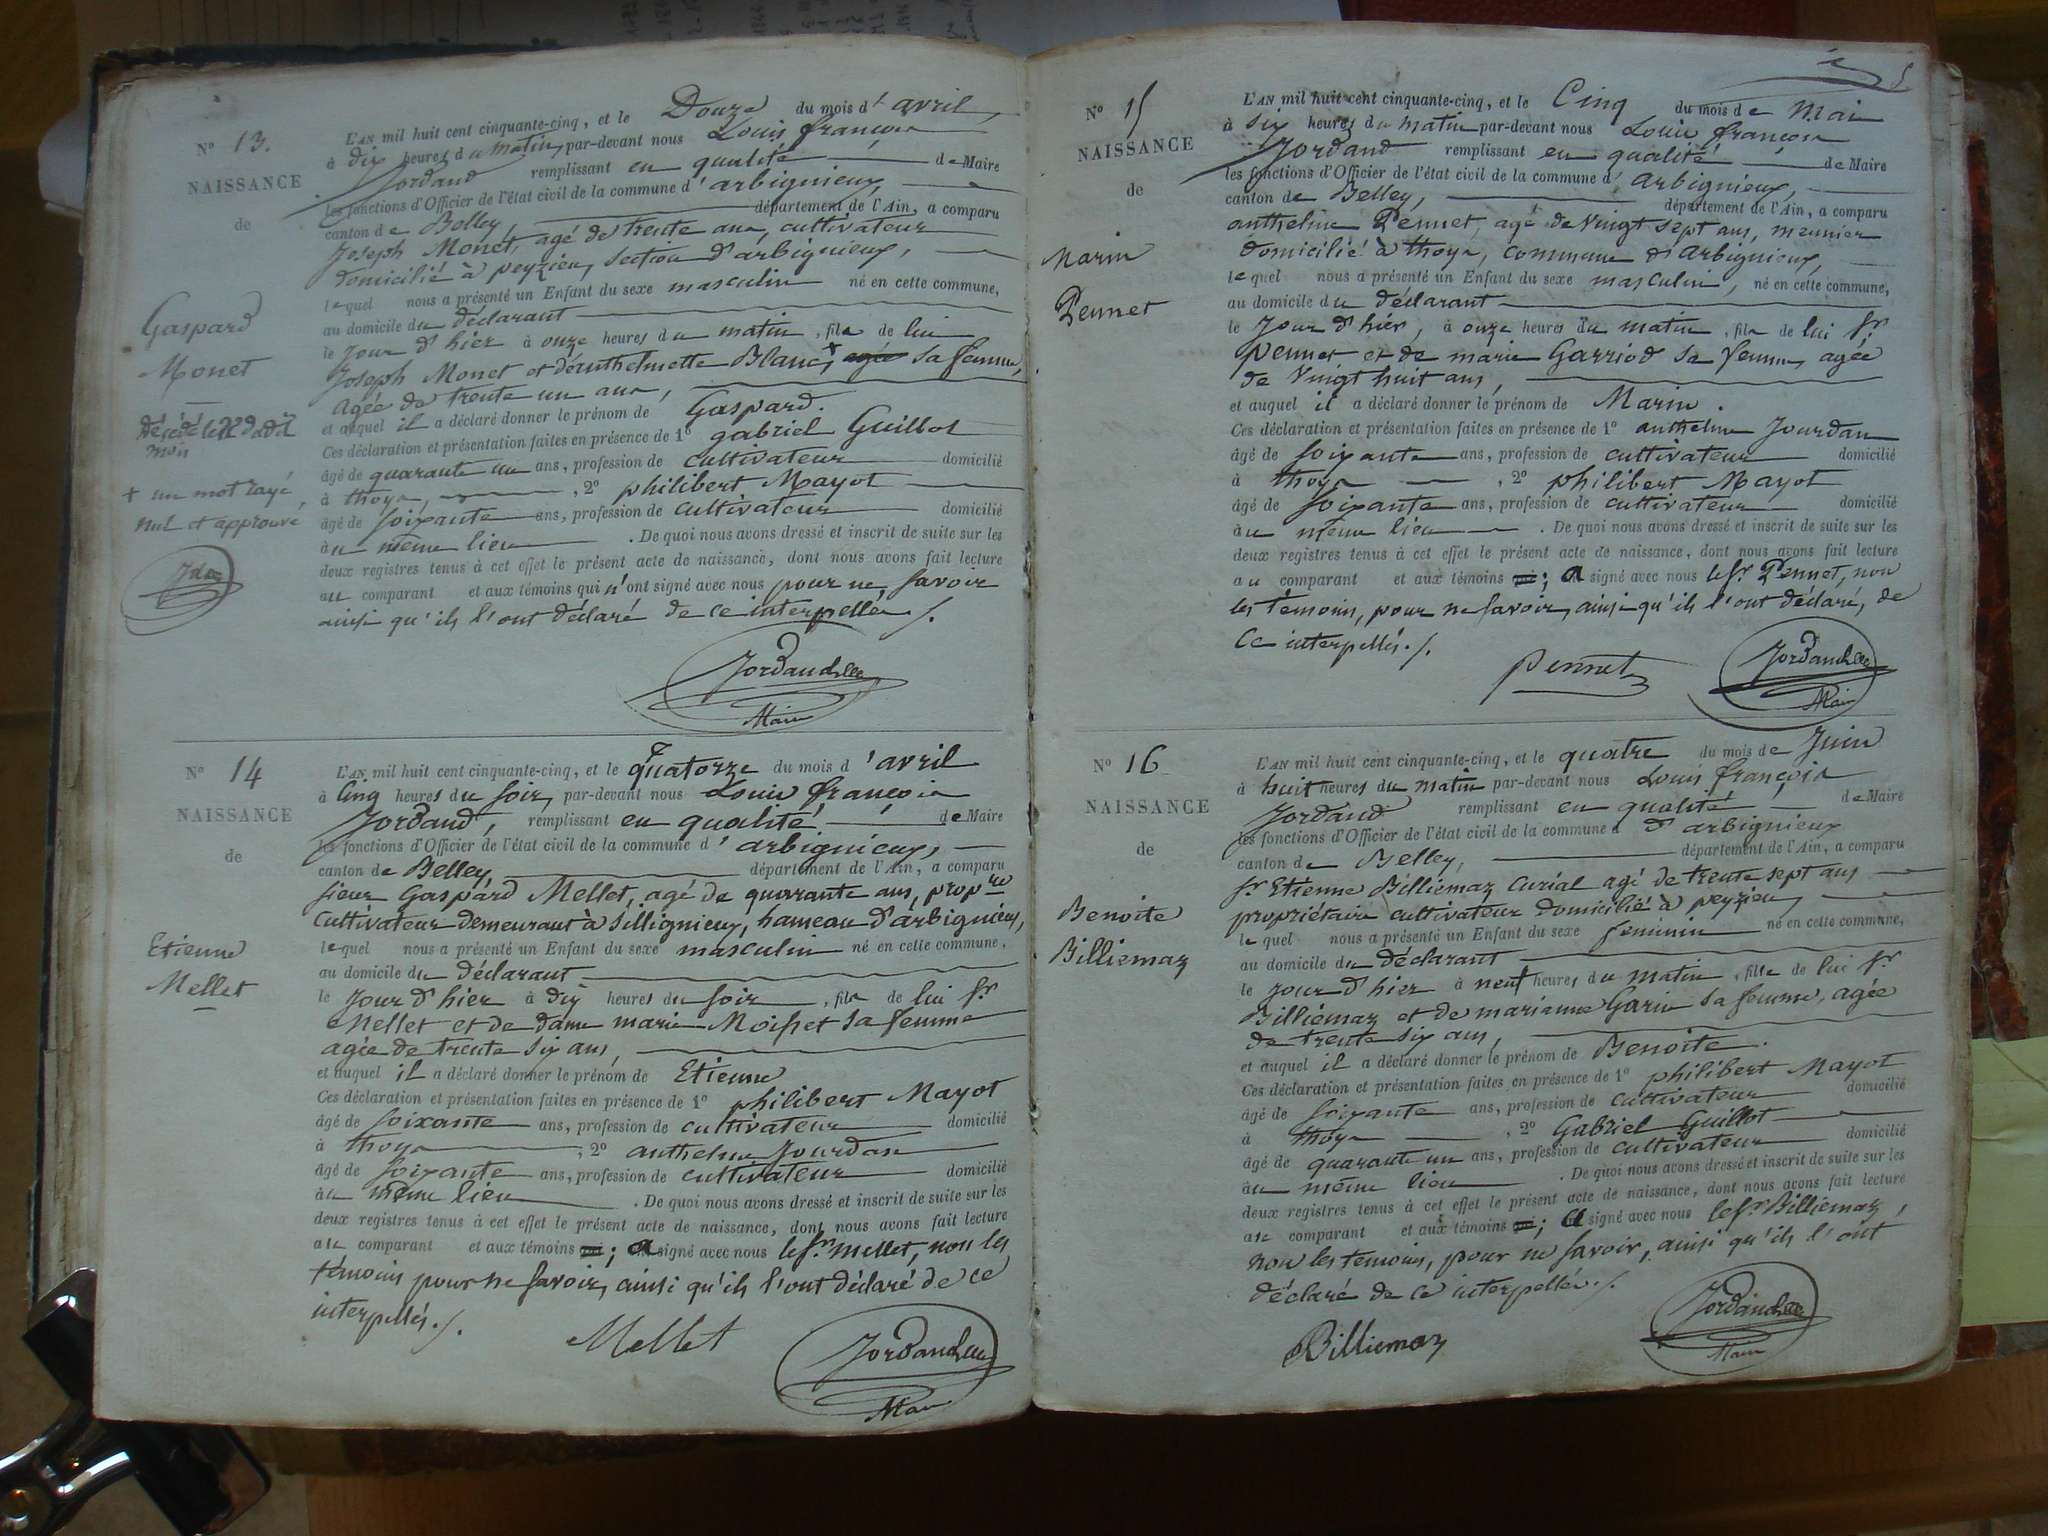 N° 13.
NAISSANCE
de
Gaspard
Monet
+ un mot rayé
nul et approuvé
L'AN mil huit cent cinquante-cinq, et le Douze du mois d'avril,
à dix heures du matin, par-devant nous Louis françois
Jordand remplissant en qualité de Maire
les fonctions d'Officier de l'état civil de la commune d'arbignieux,
canton de Belley, département de l'Ain, a comparu
Joseph Monet, agé de trente ans, cultivateur
domicilié à peyzieu, section d'arbignieux,
lequel nous a présenté un Enfant du sexe masculin né en cette commune,
au domicile du déclarant
le Jour d'hier à onze heures du matin, fils de lui
Joseph Monet et d'énthelmette Blanc, + agée sa femme,
agée de trente un ans,
et auquel il a déclaré donner le prénom de Gaspard.
Ces déclaration et présentation faites en présence de 1° gabriel Guillot
âgé de quarante un ans, profession de cultivateur domicilié
à thoys, 2° philibert Mayot
âgé de soixante ans, profession de cultivateur domicilié
au même lieu. De quoi nous avons dressé et inscrit de suite sur les
deux registres tenus à cet effet le présent acte de naissance, dont nous avons fait lecture
au comparant et aux témoins qui n'ont signé avec nous pour ne savoir
ainsi qu'ils l'ont déclaré de ce interpellés /.
Jordand
Maire
N° 14
NAISSANCE
de
Etienne
Mellet
L'AN mil huit cent cinquante-cinq, et le quatorze du mois d'avril
à Cinq heures du soir, par-devant nous Louis françois
Jordand, remplissant en qualité de Maire
les fonctions d'Officier de l'état civil de la commune d'arbignieux,
canton de Belley, département de l'Ain, a comparu
sieur Gaspard Mellet, agé de quarante ans, propre
cultivateur demeurant à Sillignieux, hameau d'arbignieux,
lequel nous a présenté un Enfant du sexe masculin né en cette commune,
au domicile du déclarant
le Jour d'hier à dix heures du soir, fils de lui sr
Mellet et de dame marie Moisset sa femme
agée de trente six ans,
et auquel il a déclaré donner le prénom de Etienne
Ces déclaration et présentation faites en présence de 1° philibert Mayot
âgé de soixante ans, profession de cultivateur domicilié
à thoys; 2° anthelme Jourdan
âgé de soixante ans, profession de cultivateur domicilié
au même lieu. De quoi nous avons dressé et inscrit de suite sur les
deux registres tenus à cet effet le présent acte de naissance, dont nous avons fait lecture
au comparant et aux témoins; a signé avec nous le sr mellet, non les
témoins pour ne savoir, ainsi qu'ils l'ont déclaré de ce
interpellés./.
Mellet
Jordand
Maire
N° 15
NAISSANCE
de
Marin
Pennet
L'AN mil huit cent cinquante-cinq, et le Cinq du mois de Mai
à six heures du matin par-devant nous Louis françois
Jordand remplissant en qualité de Maire
les fonctions d'Officier de l'état civil de la commune d'arbignieux,
canton de Belley, département de l'Ain, a comparu
anthelme Pennet, agé de vingt sept ans, meunier
domicilié à thoys, commune d'arbignieux,
lequel nous a présenté un Enfant du sexe masculin, né en cette commune,
au domicile du déclarant
le Jour d'hier, à onze heures du matin, fils de lui sr
Pennet et de marie Garriod sa femme, agée
de vingt huit ans,
et auquel il a déclaré donner le prénom de Marin.
Ces déclaration et présentation faites en présence de 1° anthelme Jourdan
âgé de soixante ans, profession de cultivateur domicilié
à thoys, 2° philibert Mayot
âgé de soixante ans, profession de cultivateur domicilié
au même lieu. De quoi nous avons dressé et inscrit de suite sur les
deux registres tenus à cet effet le présent acte de naissance, dont nous avons fait lecture
au comparant et aux témoins; a signé avec nous le sr Pennet, non
les témoins, pour ne savoir, ainsi qu'ils l'ont déclaré, de
ce interpellés./.
Pennet
Jordand
Maire
N° 16
NAISSANCE
de
Benoite
Billiemaz
L'AN mil huit cent cinquante-cinq, et le quatre du mois de Juin
à huit heures du matin par-devant nous Louis françois
Jordand remplissant en qualité de Maire
les fonctions d'Officier de l'état civil de la commune d'arbignieux
canton de Belley, département de l'Ain, a comparu
sr Etienne Billiemaz Curial agé de trente sept ans
propriétaire cultivateur domicilié à peyzieu,
lequel nous a présenté un Enfant du sexe feminin né en cette commune,
au domicile du déclarant
le jour d'hier à neuf heures du matin, fille de lui sr
Billiemaz et de marianne Garin sa femme, agée
de trente six ans,
et auquel il a déclaré donner le prénom de Benoite.
Ces déclaration et présentation faites en présence de 1° philibert Mayot
âgé de soixante ans, profession de cultivateur domicilié
à thoys, 2° Gabriel Guillot
âgé de quarante un ans, profession de cultivateur domicilié
au même lieu. De quoi nous avons dressé et inscrit de suite sur les
deux registres tenus à cet effet le présent acte de naissance, dont nous avons fait lecture
au comparant et aux témoins; a signé avec nous le sr Billiemaz,
non les témoins, pour ne savoir, ainsi qu'ils l'ont
déclaré de ce interpellés./.
Billiemaz
Jordand
Maire